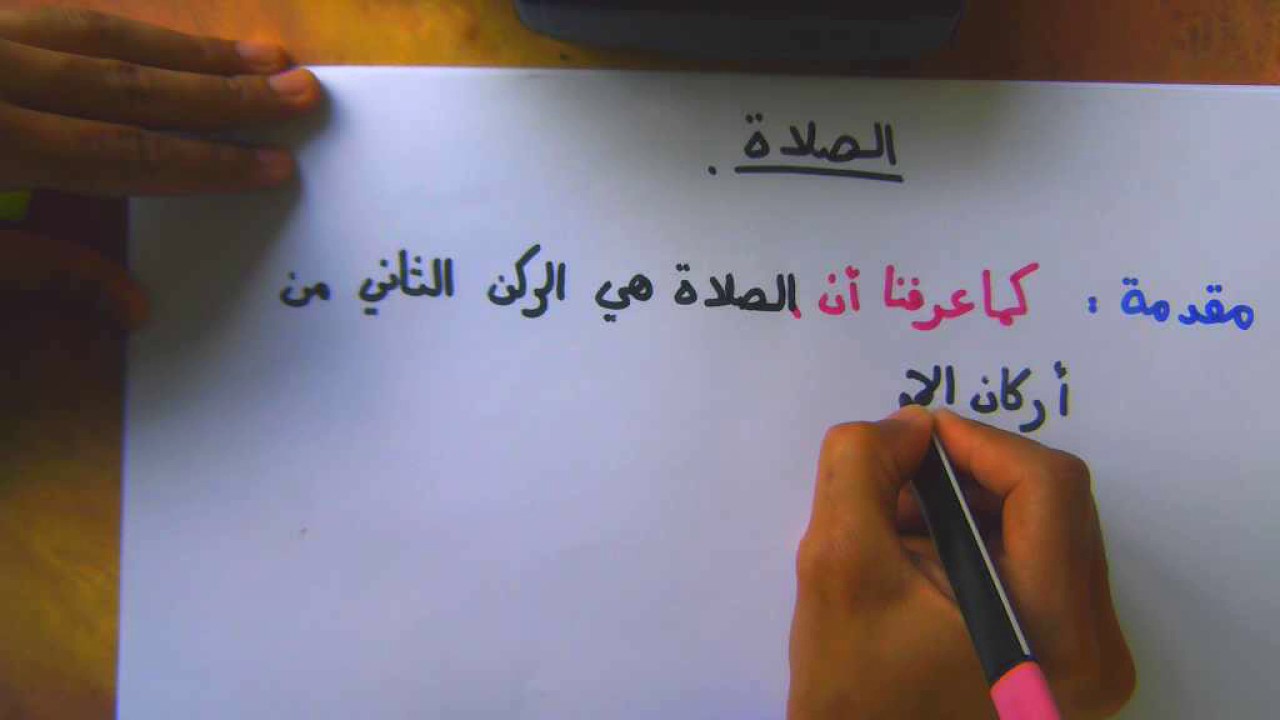 الصلاة .
مقدمة : كما عرفنا أن الصلاة هي الركن الثاني من
أركان